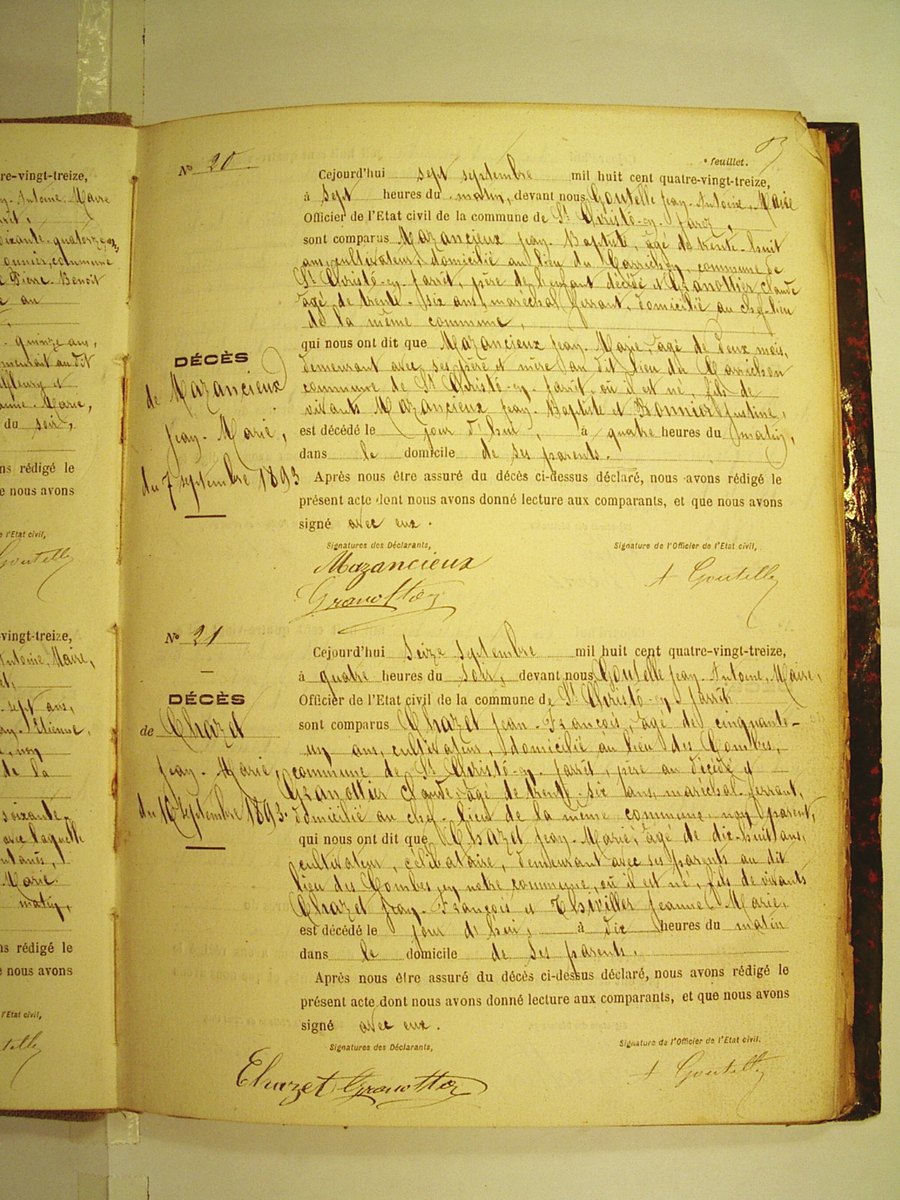 re-vingt-treize,
Antoine, Maire
oixante-quatorze
commune
Pierre-Benoît
au
quinze ans,
au dit
Marie,
du soir,
ns rédigé le
e nous avons
l'Etat civil,
Goutelle
vingt-treize,
Antoine, Maire,
sept ans,
Etienne,
de la
soixante
avec laquelle
Marie.
matin,
ns rédigé le
e nous avons
l'Etat civil,
feuillet.
N° 20
Cejourd'hui sept septembre mil huit cent quatre-vingt-treize,
à sept heures du matin, devant nous Goutelle Jean-Antoine, Maire
Officier de l'Etat civil de la commune de St Christô-en-Jarez,
sont comparus Mazancieux Jean-Baptiste, âgé de trente-huit
ans, cultivateur, domicilié au lieu du commune de
St Christô-en-Jarrêt, père de l'enfant décédé et Granottier Claude
âgé de trente-six ans, maréchal ferrant, domicilié au chef-lieu
de la même commune,
qui nous ont dit que Mazancieux Jean-Marie, âgé de deux mois,
demeurant avec ses père et mère au dit lieu du
commune de St Christô-en-Jarrêt, où il est né, fils de
vivants Mazancieux Jean-Baptiste et Bonnier
est décédé le jour d'hui, à quatre heures du matin,
dans le domicile de ses parents.
Après nous être assuré du décès ci-dessus déclaré, nous avons rédigé le
présent acte dont nous avons donné lecture aux comparants, et que nous avons
signé avec eux.
DÉCÈS
de Mazancieux
Jean-Marie,
du 7 septembre 1893
Signatures des Déclarants,
Signature de l'Officier de l'Etat civil,
Mazancieux
Granottier
A Goutelle
N° 21
Cejourd'hui seize septembre mil huit cent quatre-vingt-treize,
à quatre heures du soir, devant nous Goutelle Jean-Antoine, Maire,
Officier de l'Etat civil de la commune de St Christô-en-Jarrêt
sont comparus Chazet Jean-François, âgé de cinquante-
un ans, cultivateur, domicilié au lieu des Combes,
commune de St Christô-en-Jarrêt, père au décédé et
Granottier Claude âgé de trente-six ans, maréchal-ferrant,
domicilié au chef-lieu de la même commune non parent,
qui nous ont dit que Chazet Jean-Marie, âgé de dix-huit ans,
cultivateur, célibataire, demeurant avec ses parents au dit
lieu des Combes en notre commune, où il est né, fils de vivants
Chazet Jean-François et Thiviller Jeanne-Marie,
est décédé le jour d'hui, à dix heures du matin
dans le domicile de ses parents.
Après nous être assuré du décès ci-dessus déclaré, nous avons rédigé le
présent acte dont nous avons donné lecture aux comparants, et que nous avons
signé avec eux.
DÉCÈS
de Chazet
Jean-Marie,
du 16 septembre 1893.
Signatures des Déclarants,
Signature de l'Officier de l'Etat civil.
Chazet Granottier
A Goutelle